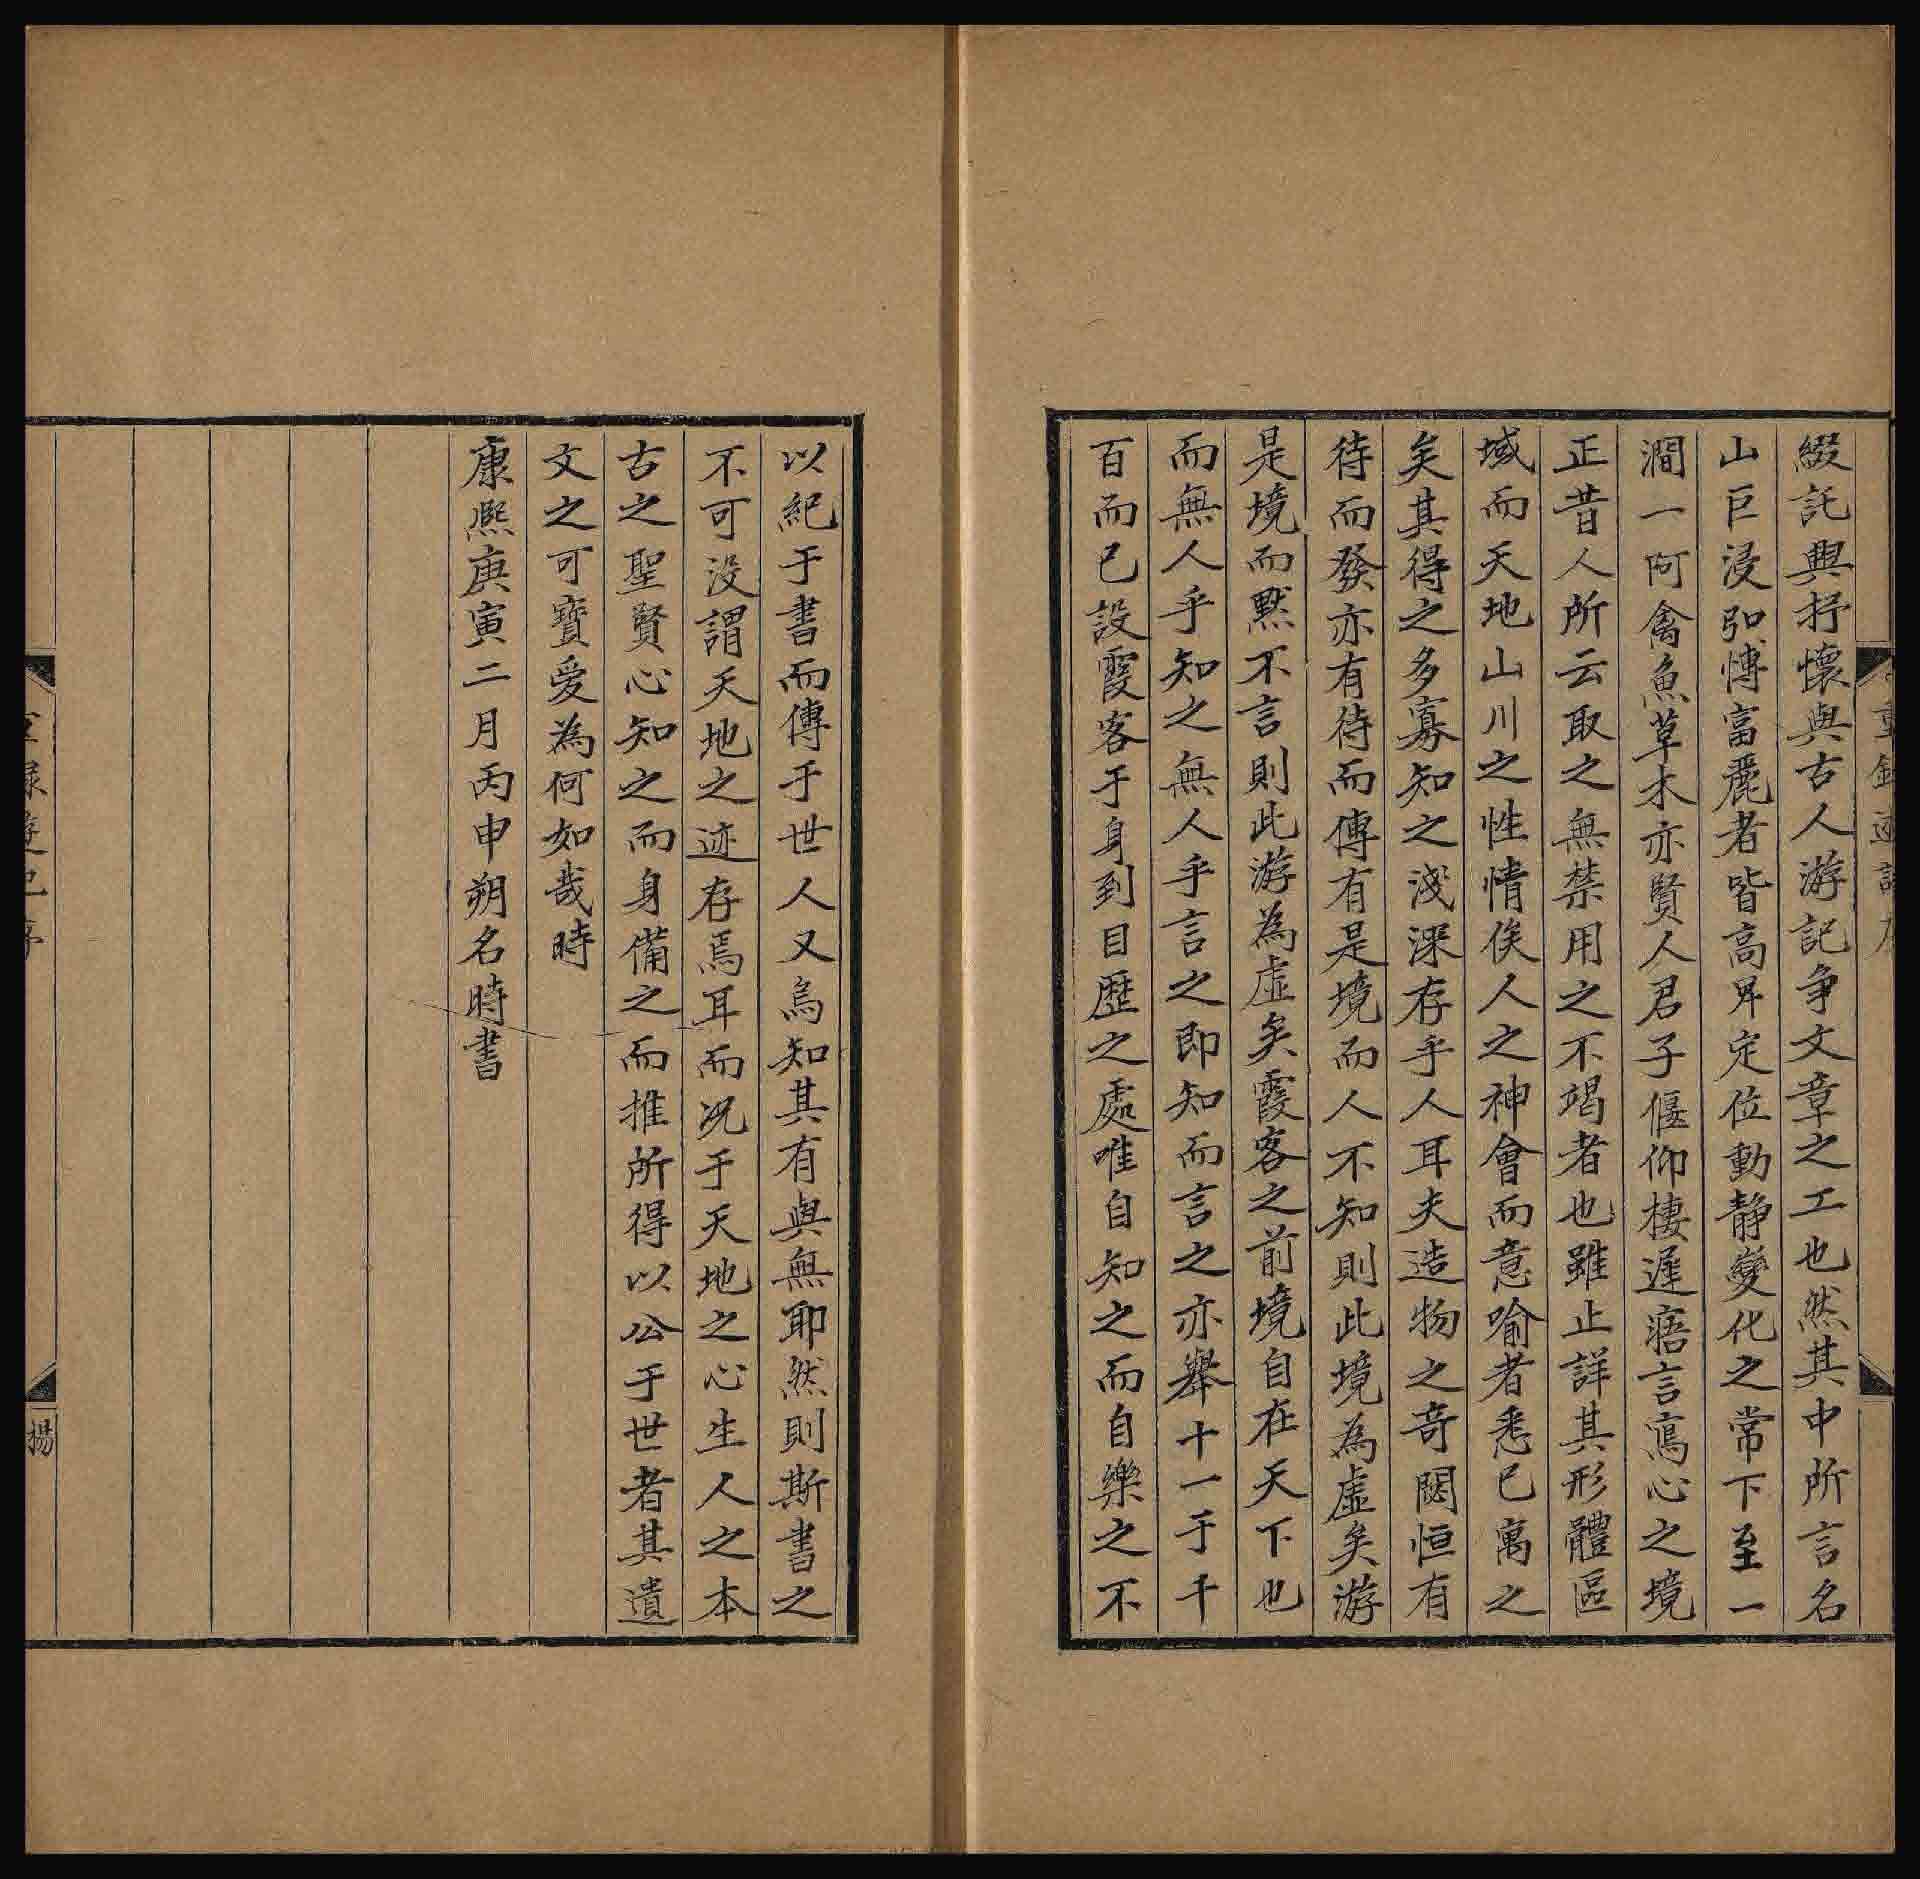 綴託興抒懷與古人游記争文章之工也然其中所言名
山巨浸弘博富麗者皆高卑定位動静變化之常下至一
澗一阿禽魚草木亦賢人君子偃仰棲遲寤言寫心之境
正昔人所云取之無禁用之不竭者也雖止詳其形體區
域而天地山川之性情俟人之神會而意喻者悉已寓之
矣其得之多寡知之淺深存乎人耳夫造物之奇閟恒有
待而發亦有待而傳有是境而人不知則此境為虛矣游
是境而默不言則此游為虛矣霞客之前境自在天下也
而無人乎知之無人乎言之即知而言之亦舉十一于千
百而已設霞客于身到目歷之處唯自知之而自樂之不
以紀于書而傳于世人又烏知其有與無耶然則斯書之
不可没謂天地之迹存焉耳而况于天地之心生人之本
古之聖賢心知之而身備之而推所得以公于世者其遺
文之可寶愛為何如哉時
康熙庚寅二月丙申朔名時書
楊